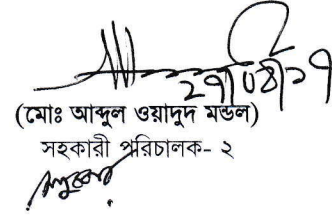 ২৭/০৪/১৭
(মোঃ আব্দুল ওয়াদুদ মন্ডল)
সহকারী পরিচালক- ২